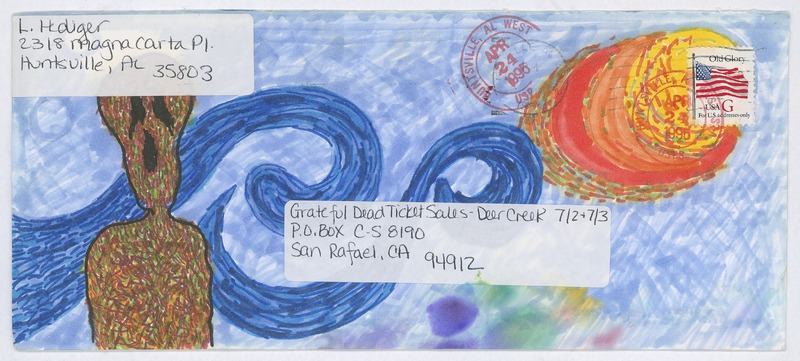 L.
2318 Magna Carta Pl.
Huntsville, AL
35803
HUNTSVILLE, AL WEST
APR
24
1995
USP
APR
24
1995
Old Glory
USA G
For U.S. addresses only
Grateful Dead Ticket Sales - Deer Creek 7/2 + 7/3
P.O. Box C-S 8190
San Rafael, CA
94912